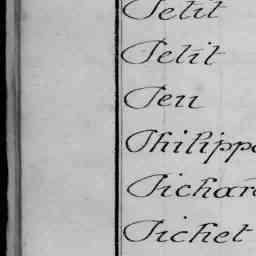 Petit
Petit
Peu
Philippe
Pichard
Pichet